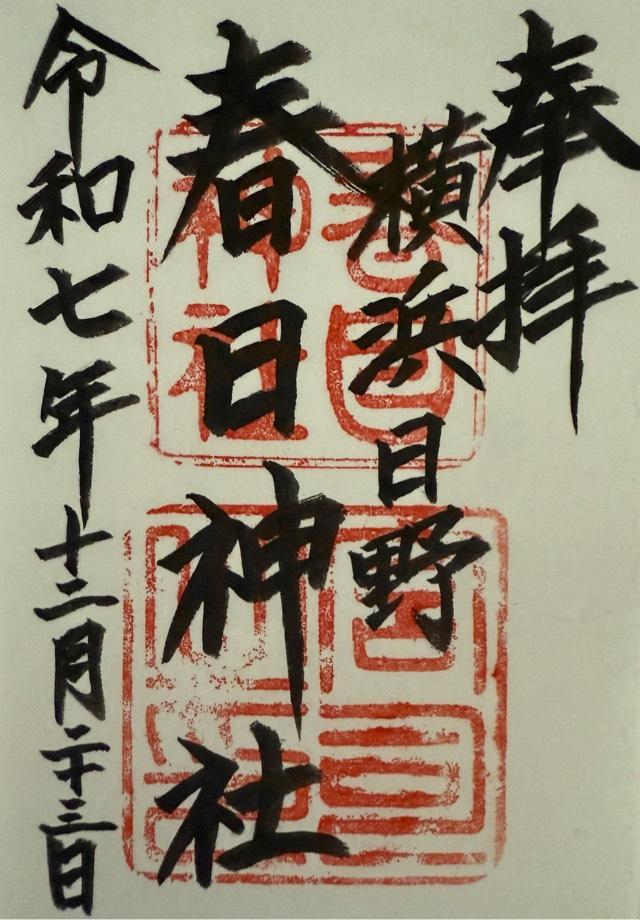 奉拝
横浜日野
春日神社
令和七年十二月二十三日
春日神社